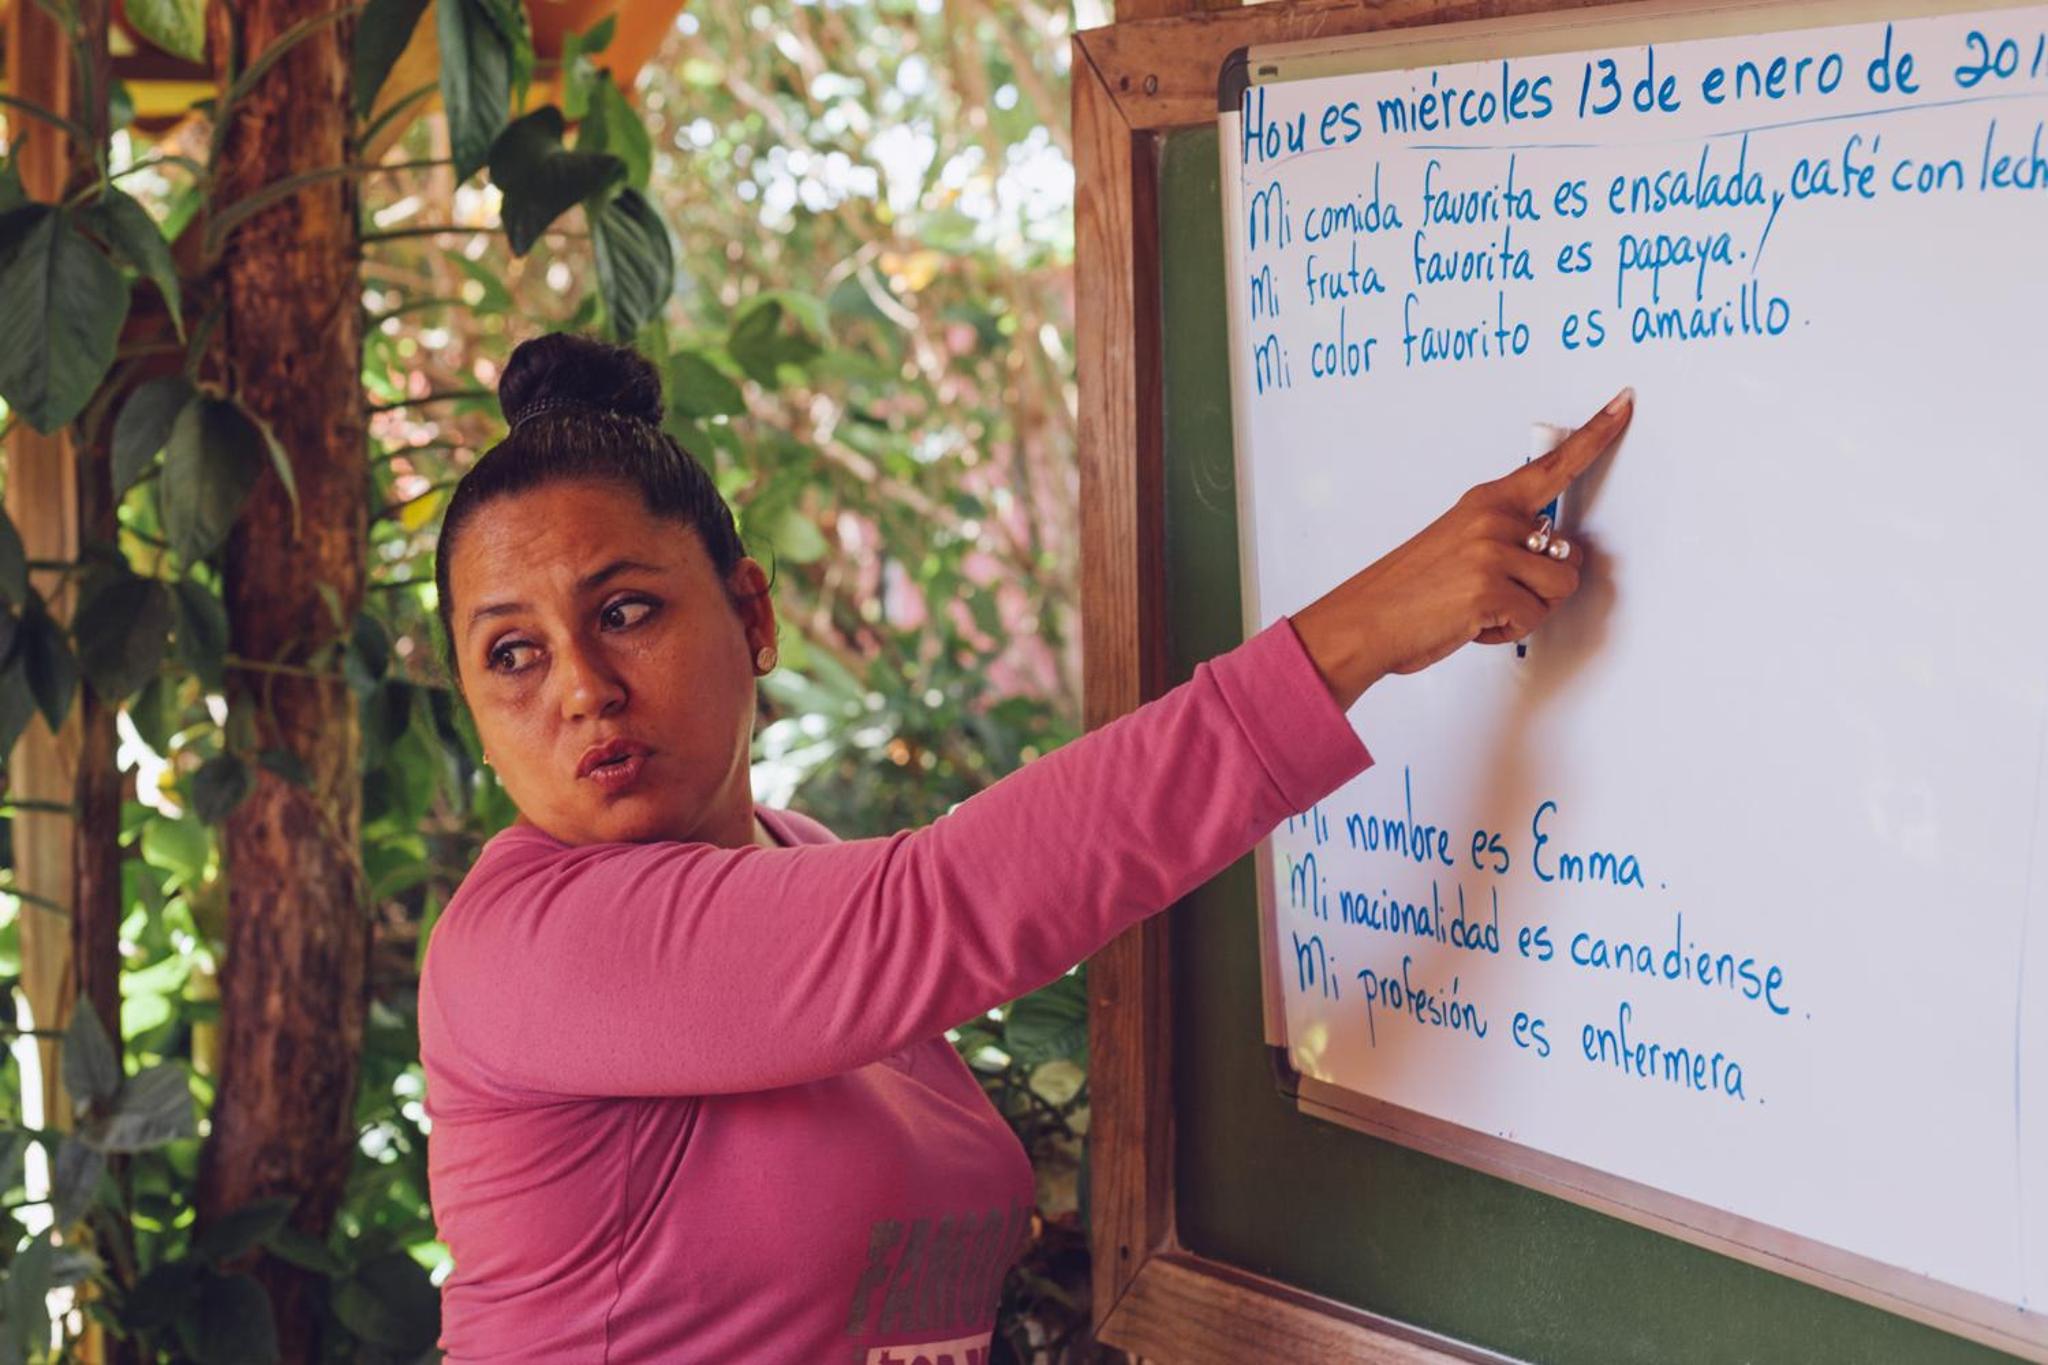 Hou es miércoles 13 de enero de 201
Mi comida favorita es ensalada, café con lech
Mi fruta favorita es papaya.
Mi color favorito es amarillo.
Mi nombre es Emma.
Mi nacionalidad es canadiense.
Mi profesión es enfermera.